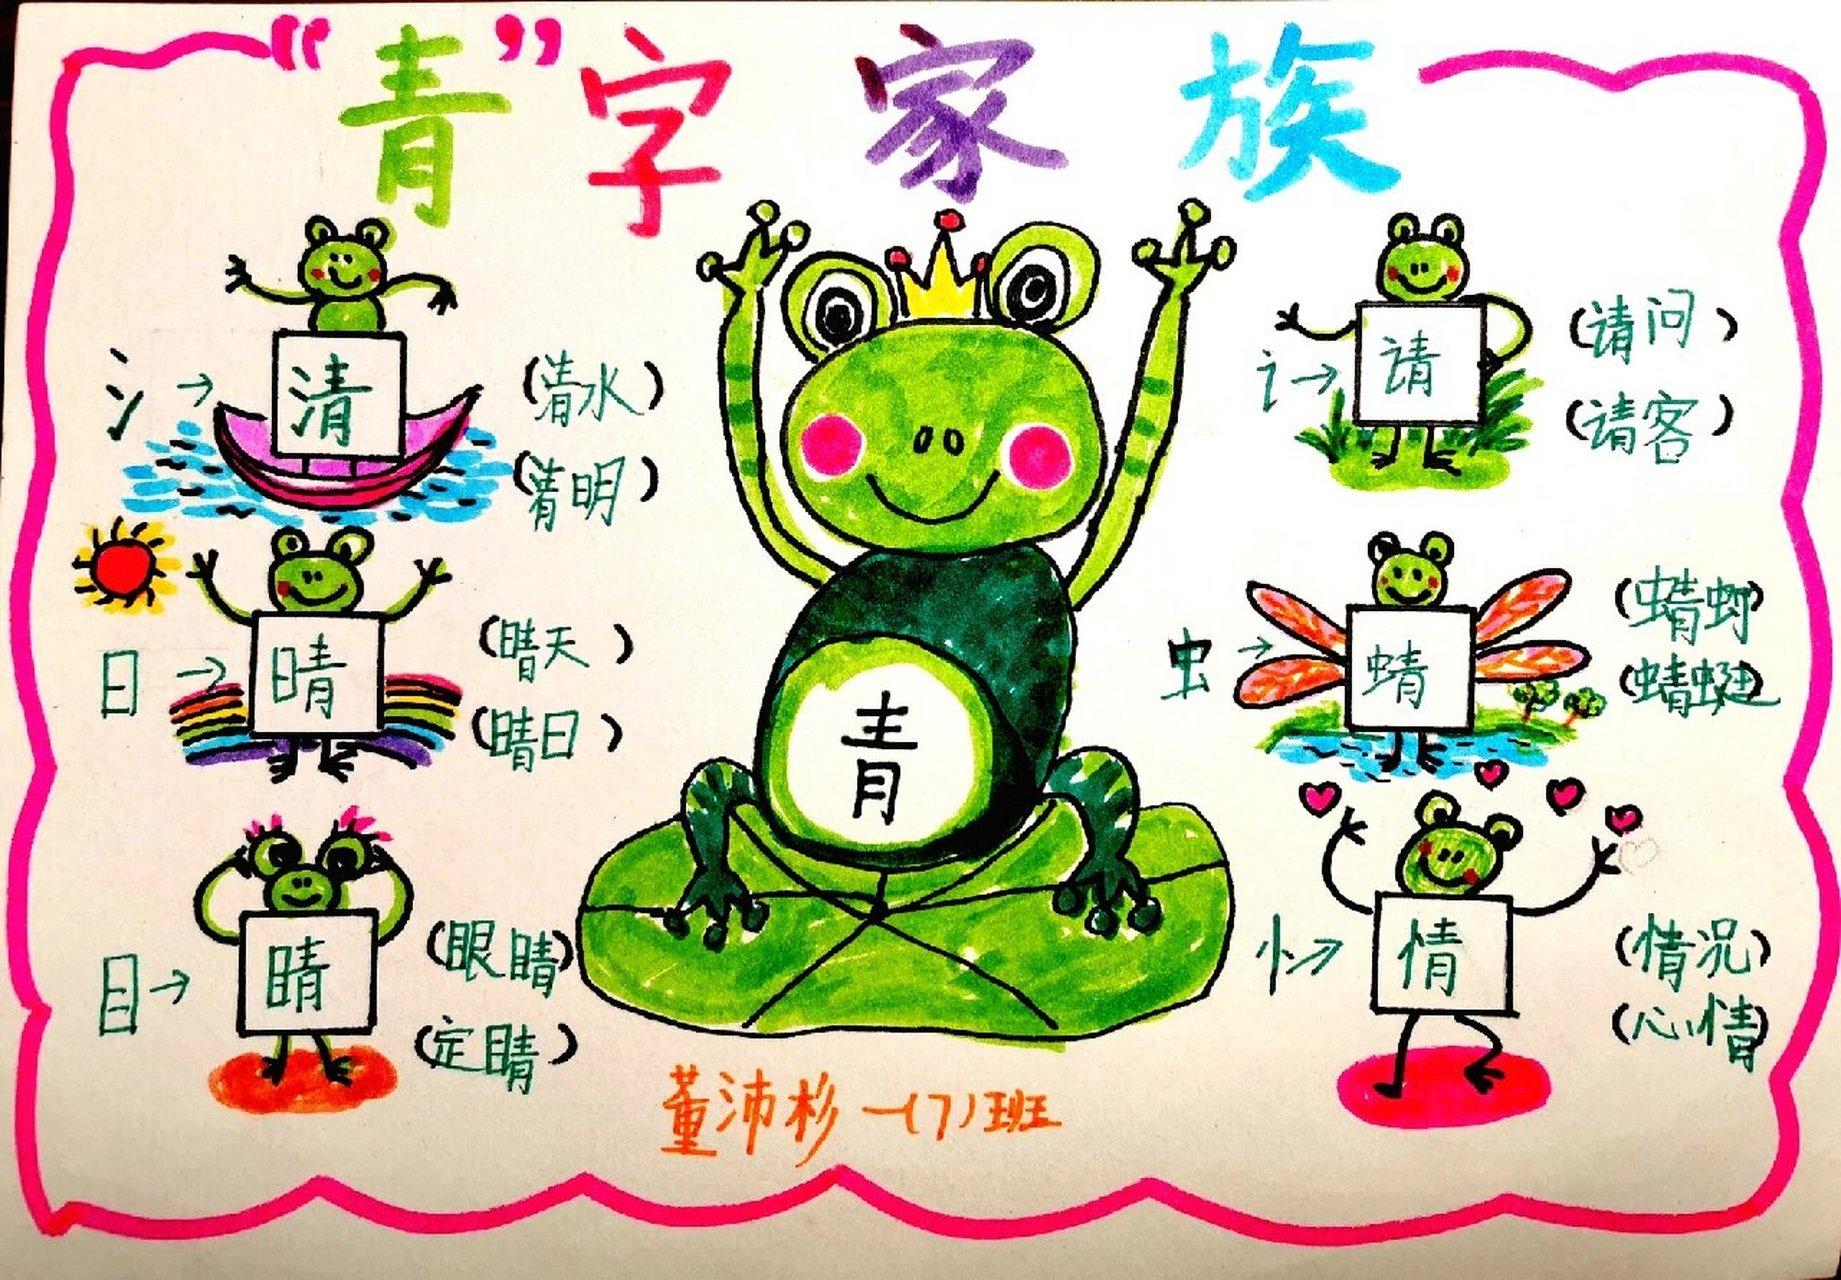 “青”字家族
氵→ 清
(清水)
(清明)
日→ 晴
(晴天)
(晴日)
目→ 睛
(眼睛)
(定睛)
青
讠→ 请
(请问)
(请客)
虫→ 蜻
(蜻蜓)
忄→ 情
(情况)
(心情)
董沛杉 一(7)班